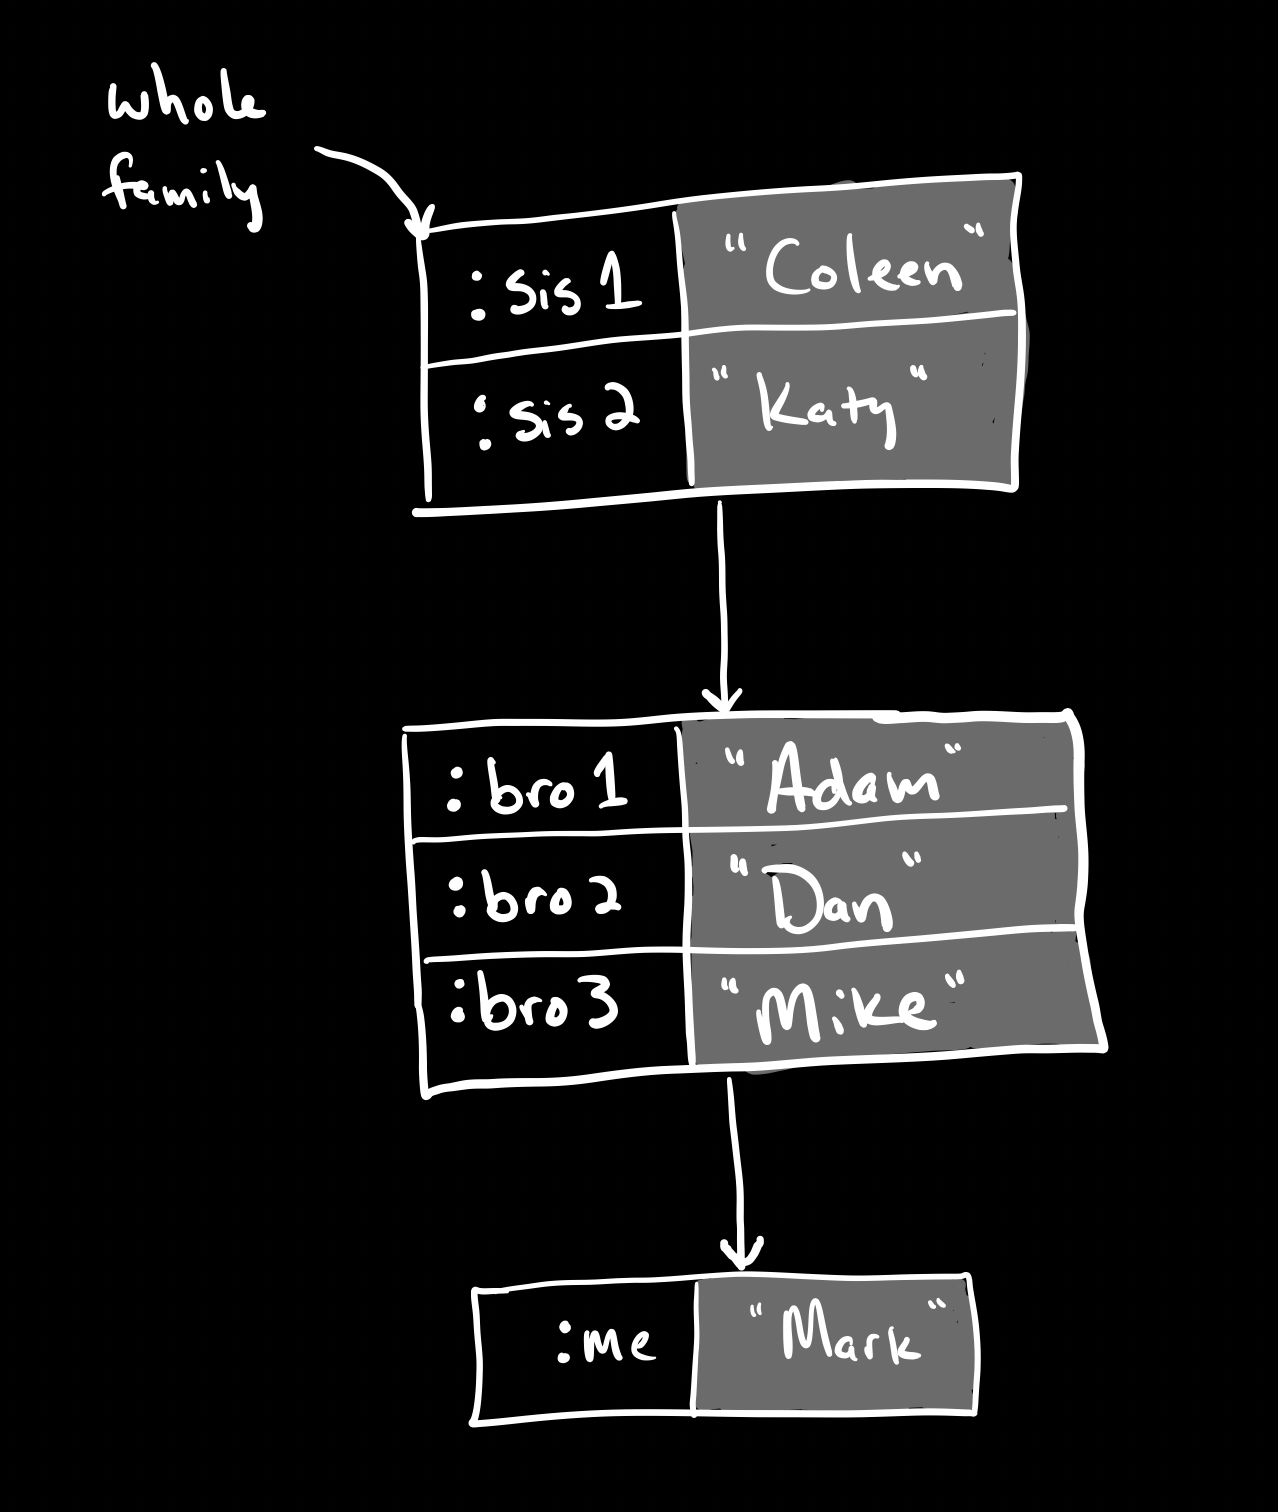 whole
family
:sis1 "Coleen"
:sis2 "Katy"
:bro1 "Adam"
:bro2 "Dan"
:bro3 "Mike"
:me "Mark"